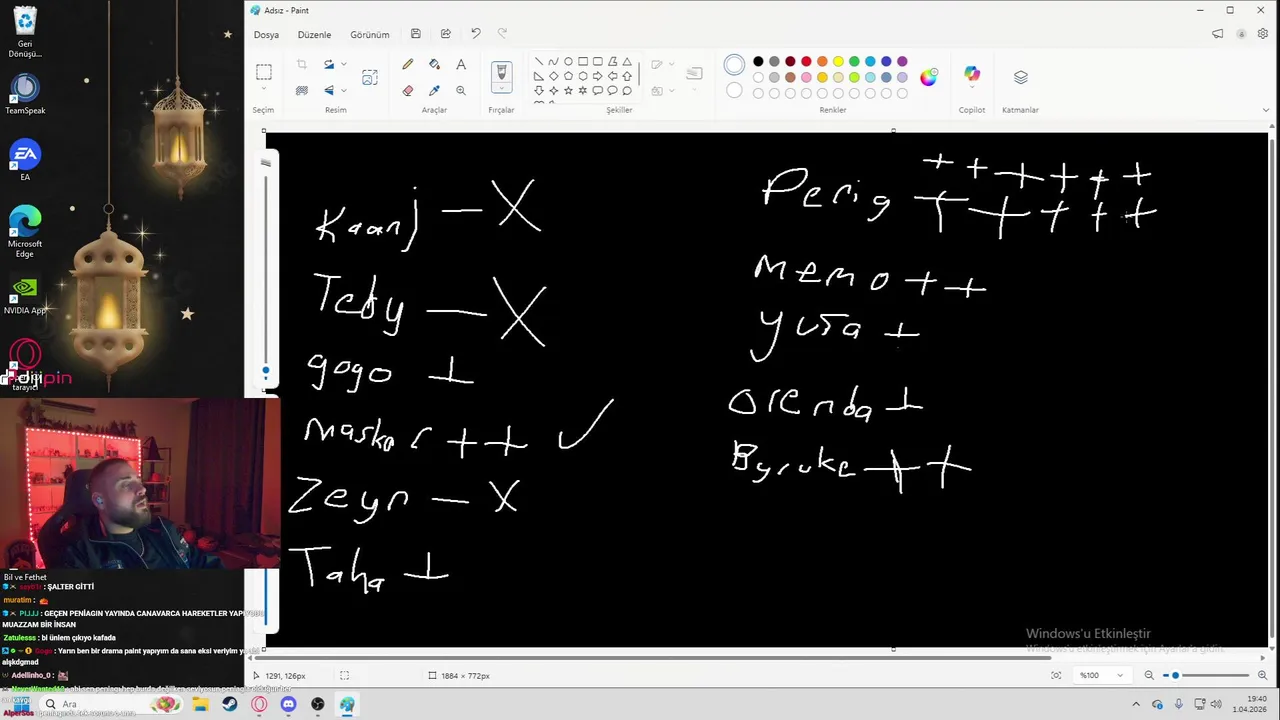 Adsız - Paint
Dosya
Düzenle
Görünüm
Seçim
Resim
Araçlar
Fırçalar
Şekiller
Renkler
Copilot
Katmanlar
Geri
Dönüşü...
TeamSpeak
EA
Microsoft
Edge
NVIDIA App
tarayıcı
Kaanj — X
Teby — X
gogo +
maskar ++ ✓
Zeyn — X
Taha +
Penig ++++++ +++++
memo ++
yusa +
orenda +
Byruke ++
Bil ve Fethet
: ŞALTER GİTTİ
muratim :
PIJJJ : GEÇEN PENİAGIN YAYINDA CANAVARCA HAREKETLER YAPIYODU
MUAZZAM BİR İNSAN
Zatulesss : bi ünlem çıkıyo kafada
Gogo : Yarın ben bir drama paint yapıyım da sana eksi veriyim
alşkdgmad
Adellinho_0 :
Windows'u Etkinleştir
Windows'u etkinleştirmek için Ayarlar'a gidin.
1291, 126px
1884 × 772px
%100
Ara
19:40
1.04.2026